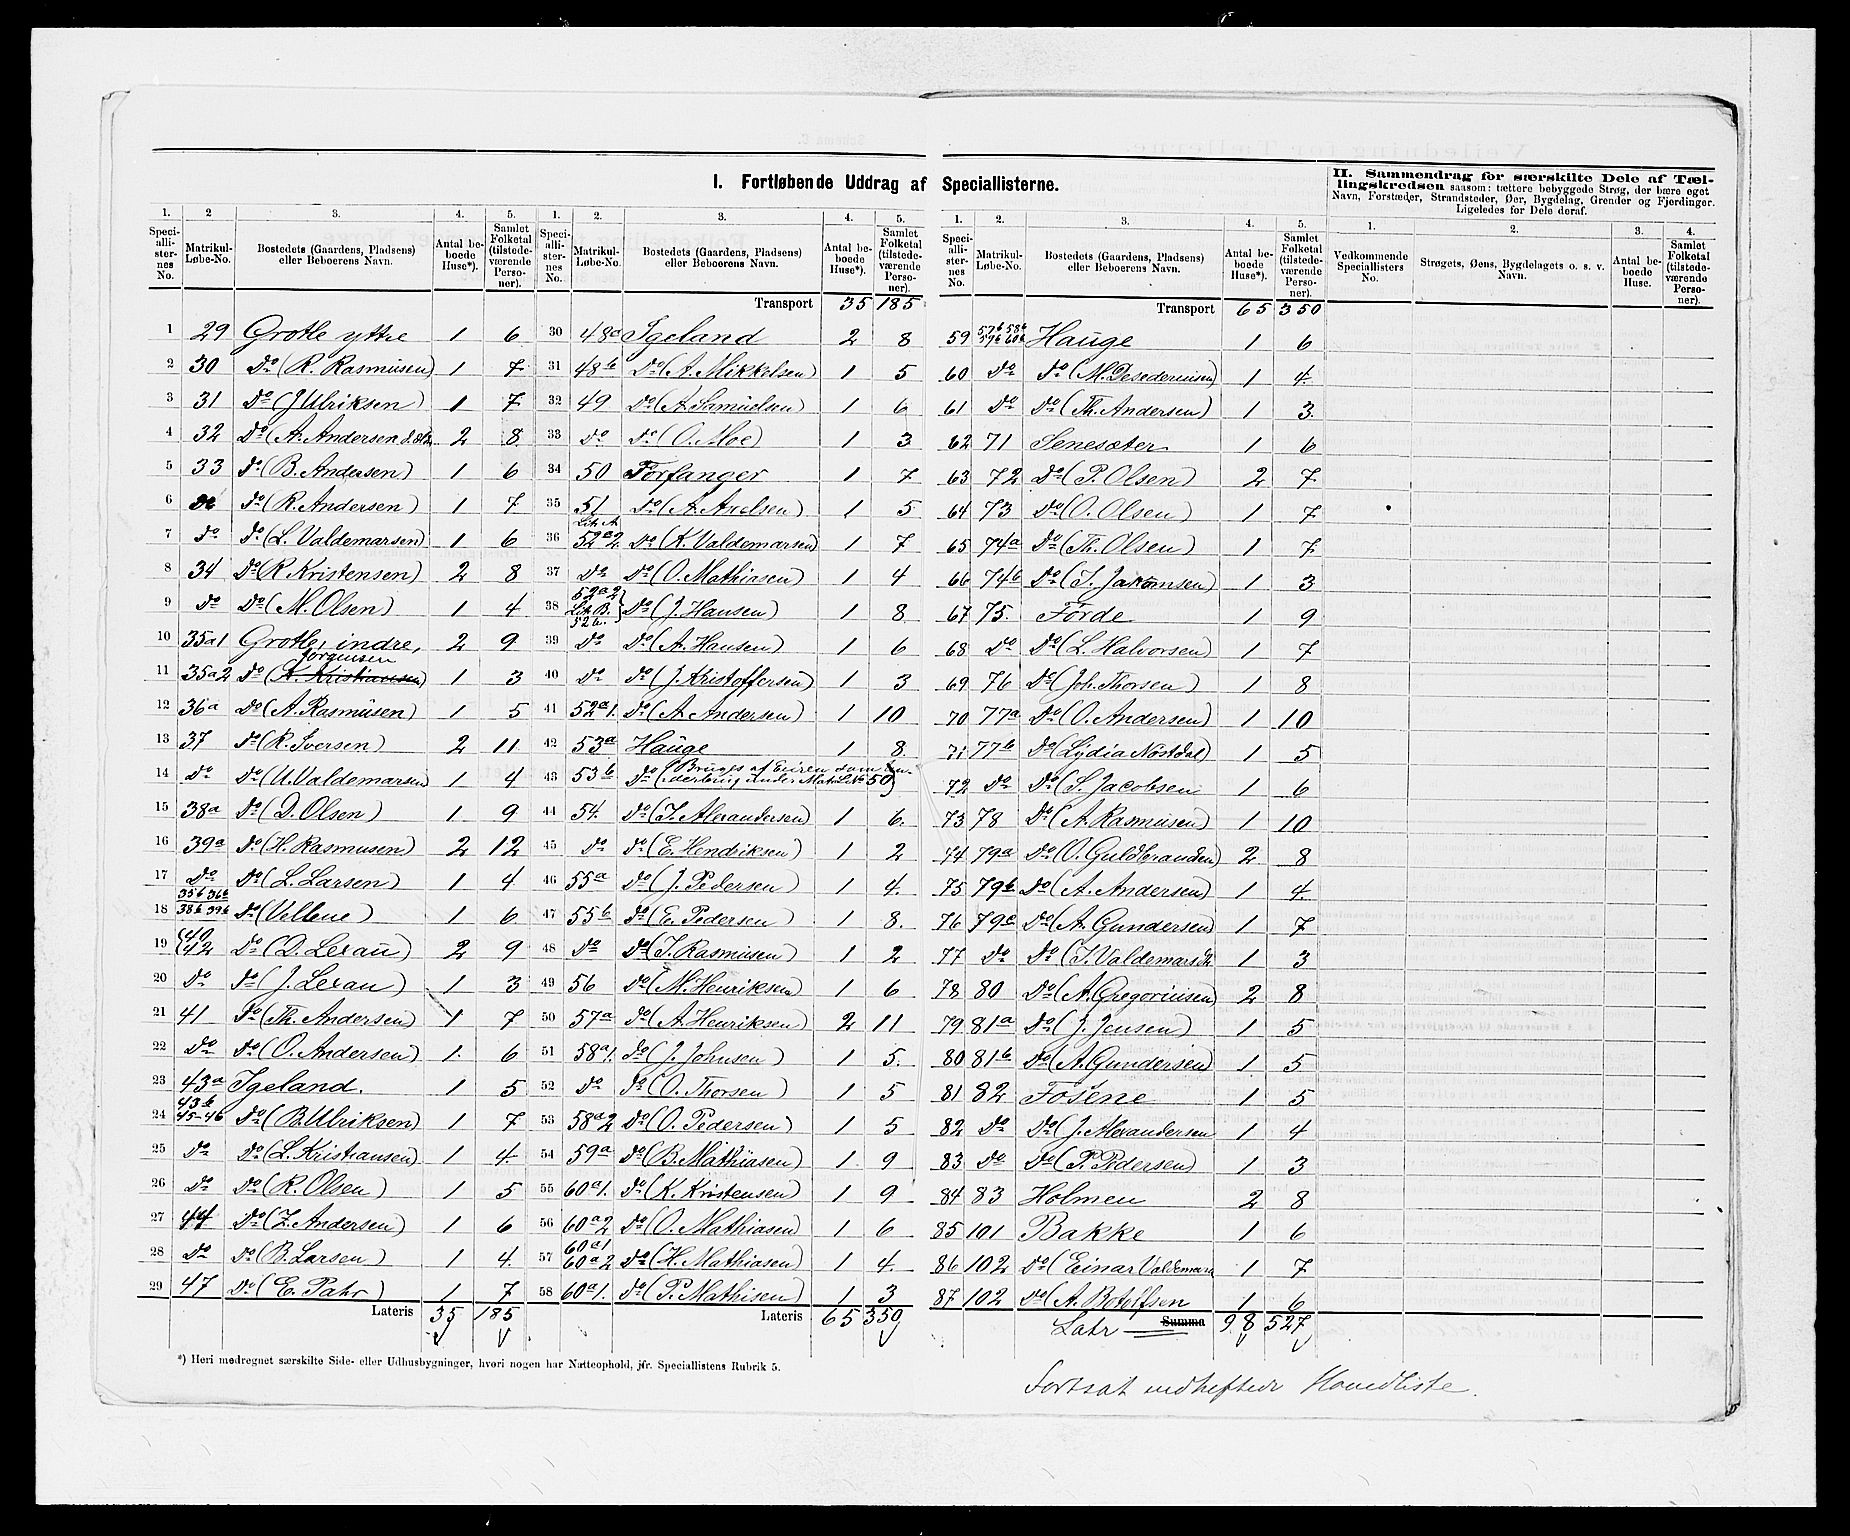 I. Fortløbende Uddrag af Speciallisterne.
II. Sammendrag for særskilte Dele af Tæl-
lingskredsen saasom: tættere bebyggede Strøg, der bære eget
Navn, Forstæder, Strandsteder, Øer, Bygdelag, Grender og Fjerdinger.
Ligeledes for Dele deraf.
1. 2 3. 4. 5.
Speciallisternes No. Matrikul-Løbe-No. Bostedets (Gaardens, Pladsens) eller Beboerens Navn. Antal beboede Huse*). Samlet Folketal (tilstedeværende Personer).
1 29 Grotle yttre 1 6
2 30 Do (R. Rasmusen) 1 7
3 31 Do (J Ulriksen) 1 7
4 32 Do (A. Andersen 2 8
5 33 Do (B. Andersen) 1 6
6 Do Do (R. Andersen) 1 7
7 Do Do (L. Valdemarsen) 1 6
8 34 Do (R Kristensen) 2 8
9 Do Do (M. Olsen) 1 4
10 35a1 Grotle, indre, 2 9
Jörginsen
11 35a2 Do (A. Kristiansen) 1 3
12 36a Do (A. Rasmüsen) 1 5
13 37 Do (R. Iversen) 2 11
14 Do Do (U. Valdemarsen 1 4
15 38a Do (D. Olsen) 1 9
16 39a Do (H. Rasmusen) 2 12
17 Do Do (L. Larsen) 1 4
35b 36b
18 38b 39b Do (Vellene) 1 6
40
19 42 Do (D. Lexau) 2 9
20 Do Do (J. Lexau) 1 3
21 41 Do (Th. Andersen) 1 7
22 Do Do (O. Andersen) 1 6
23 43a Igeland. 1 5
43b
24 45-46 Do (B. Ulriksen) 1 7
25 Do Do (L. Kristiansen) 1 4
26 Do Do (R. Olsen) 1 5
27 44 Do (Z. Andersen) 1 6
28 Do Do (B. Larsen) 1 4
29 47 Do (E. Pahr) 1 7
Lateris 35 185
1. 2. 3. 4. 5.
Speciallisternes No. Matrikul-Løbe-No. Bostedets (Gaardens, Pladsens) eller Beboerens Navn. Antal beboede Huse*). Samlet Folketal (tilstedeværende Personer).
Transport 35 185
30 48a Igeland 2 8
31 48b Do (A. Mikkelsen) 1 5
32 49 Do (A. Samüelsen) 1 6
33 Do Do (O. Moe) 1 3
34 50 Forfanger 1 7
35 51 Do (A. Axelsen) 1 5
Lit. A
36 52a2. Do (K. Valdemarsen) 1 7
37 Do Do (O. Mathiasen) 1 4
52a2
38 Lit. B. Do (J. Hansen) 1 8
52b.
39 Do Do (A. Hansen) 1 6
40 Do Do (J. Kristoffersen) 1 3
41 52a1. Do (A. Andersen) 1 10
42 53a Hauge 1 8
43 53b Do (Bruges af Eieren som
Matr. No 50)
44 54. Do (I. Alexandersen) 1 6.
45 Do Do (E. Hendriksen) 1 2
46 55a Do (J. Pedersen) 1 4.
47 55b Do (E. Pedersen) 1 8.
48 Do Do (I. Rasmüsen) 1 2
49 56 Do (M. Henriksen) 1 6
50 57a Do (A. Henriksen) 2 11
51 58a1. Do (J. Johnsen) 1 5.
52 Do Do (O. Thorsen) 1 5
53 58a2 Do (O. Pedersen) 1 5
54 59a Do (B. Mathiasen) 1. 9
55 60a1. Do (K. Kristensen) 1 9
56 60a2 Do (O. Mathiasen) 1 6
60a1.
57 60a2 Do (H. Mathiasen) 1 4.
58 60a1. Do (P. Mathisen) 1 3
Lateris 65 350
1. 2. 3. 4. 5.
Speciallisternes No. Matrikul-Løbe-No. Bostedets (Gaardens, Pladsens) eller Beboerens Navn. Antal beboede Huse*). Samlet Folketal (tilstedeværende Personer).
Transport 65 350
57b 58b
59 59b 60b Hauge 1 6
60 Do Do (M. Desederiusen) 1 4.
61 Do Do (Th. Andersen) 1 3.
62 71 Senesæter 1 6
63 72 Do (P. Olsen) 2 7
64 73 Do (O. Olsen) 1 7
65 74a Do (Th. Olsen) 1 7
66 74b Do (I. Jakobsen) 1 3
67 75. Förde 1 9
68 Do Do (L. Halvorsen) 1 7
69 76 Do (Joh. Thorsen) 1 8
70 77a Do (O. Andersen) 1 10
71 77b Do (Lydia Nöstdal) 1 5
72 Do Do (S. Jacobsen 1 6
73 78 Do (A. Rasmüsen) 1 10
74 79a Do (O. Guldbrandsen) 2 8
75 79b Do (A. Andersen) 1 4.
76 79c Do (A. Gundersen) 1 7
77 Do Do (I. Valdemarsdtr. 1 3
78 80 Do (A. Gregoriusen) 2 8
79 81a Do (J. Jensen) 1 5
80 81b Do (A. Gundersen) 1 5
81 82 Fosene 1 5
82 Do Do (J. Alexandersen 1 4
83 Do Do (P. Pedersen) 1 3
84 83 Holmen 2 8
85 101 Bakke 1 6
86 102 Do (Einar Valdemars 1 7
87 102 Do (A. Botolfsen 1 6
Latr Summa 98 527
1. 2. 3. 4.
Vedkommende Speciallisters No. Strøgets, Øens, Bygdelagets o. s. v. Navn. Antal beboede Huse. Samlet Folketal (tilstedeværende Personer).
*) Heri medregnet særskilte Side- eller Udhusbygninger, hvori nogen har Natteophold, jfr. Speciallistens Rubrik 5.
Fortsat indheftede Hovedliste.